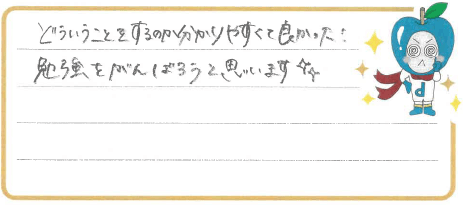 どういうことをするのか分かりやすくて良かった!
勉強をがんばろうと思います☆☆
d